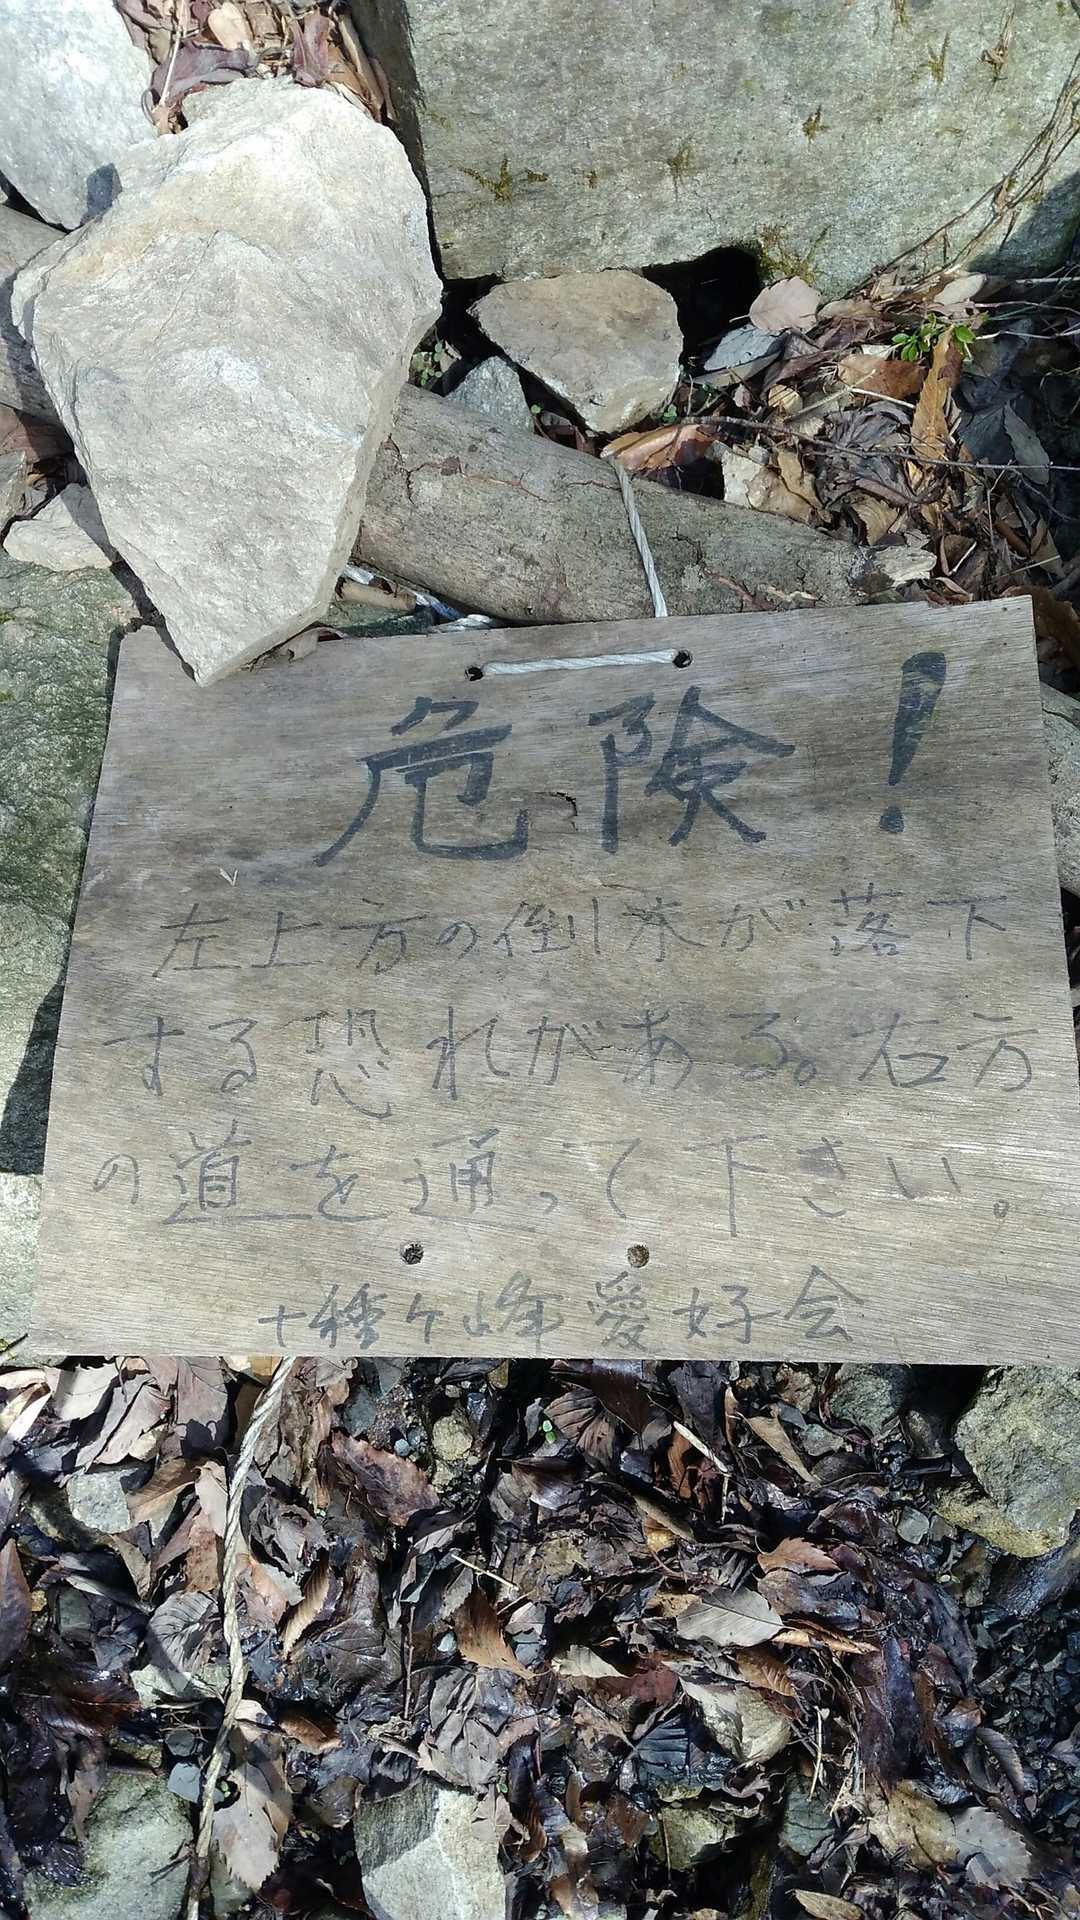 危険!
左上方の倒木が落下
する恐れがある。右方
の道を通って下さい。
十種ケ峰愛好会